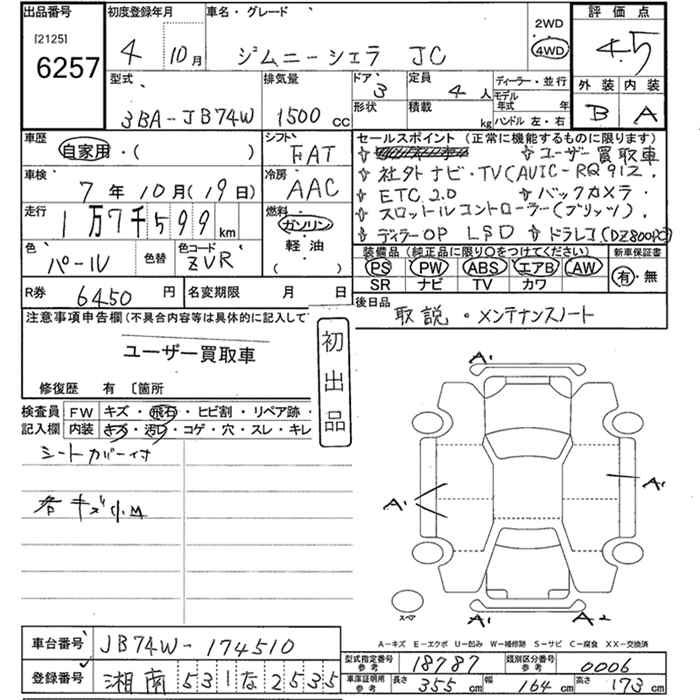 出品番号
[2125]
6257
初度登録年月
4 10月
車名・グレード
ジムニーシエラ JC
2WD
4WD
評価点
4.5
外装 内装
B A
型式
3BA-JB74W
排気量
1500cc
ドア 3
形状
定員 4人
積載 kg
ディーラー・並行
モデル年式 年
ハンドル 左・右
車歴
自家用・( )
シフト
FAT
車検
7年10月(19日)
冷房
AAC
走行
1万7千599km
燃料
ガソリン
軽油
( )
色
パール
色替
色コード
ZVR
セールスポイント(正常に機能するものに限ります)
ユーザー買取車
社外ナビ・TV(AVIC-RQ912
ETC2.0 バックカメラ
スロットルコントローラー(ブリッツ).
ディラーOP LSD ドラレコ(DZ800PC)
装備品(純正品に限り○をつけてください) 新車保証書
PS PW ABS エアB AW 有・無
SR ナビ TV カワ
R券 6450円
名変期限 月 日
後日品
取説・メンテナンスノート
注意事項申告欄(不具合内容等は具体的に記入して
ユーザー買取車
修復歴 有 〔箇所
初出品
検査員記入欄
FW キズ・飛石・ヒビ割・リペア跡・
内装 キズ・汚れ・コゲ・穴・スレ・キレ
シートカバー付
若キズ小凹
A1
A1
A1
A1 A2
スペア
A-キズ E-エクボ U-凹み W-補修跡 S-サビ C-腐食 XX-交換済
車台番号 JB74W-174510
登録番号 湘南531な2535
型式指定番号 参考 18787
類別区分番号 参考 0006
車庫証明用 参考 長さ 355cm 幅 164cm 高さ 173cm